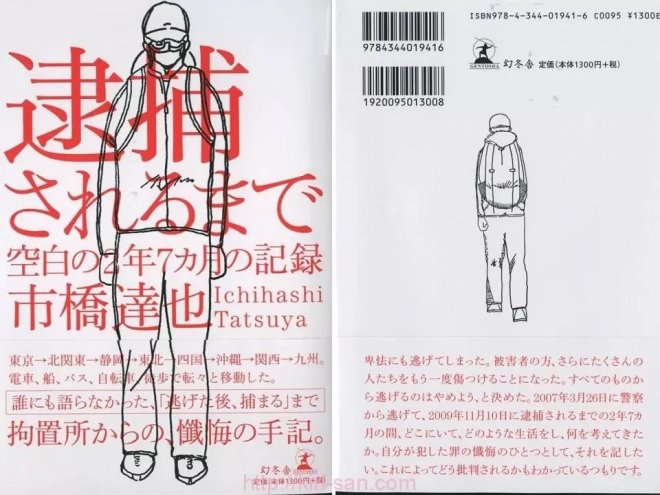 逮捕
されるまで
空白の2年7カ月の記録
市橋達也
Ichihashi
Tatsuya
東京→北関東→静岡→東北→四国→沖縄→関西→九州。
電車、船、バス、自転車、徒歩で転々と移動した。
誰にも語らなかった、「逃げた後、捕まる」まで
拘置所からの、懺悔の手記。
幻冬舎
定価(本体1300円+税)
ISBN978-4-344-01941-6 C0095 ¥1300E
9784344019416
1920095013008
GENTOSHA
幻冬舎
定価(本体1300円+税)
卑怯にも逃げてしまった。被害者の方、さらにたくさんの
人たちをもう一度傷つけることになった。すべてのものから
逃げるのはやめよう、と決めた。2007年3月26日に警察
から逃げて、2009年11月10日に逮捕されるまでの2年7カ
月の間、どこにいて、どのような生活をし、何を考えてきた
か。自分が犯した罪の懺悔のひとつとして、それを記した
い。これによってどう批判されるかもわかっているつもりです。
http://kin-san.com